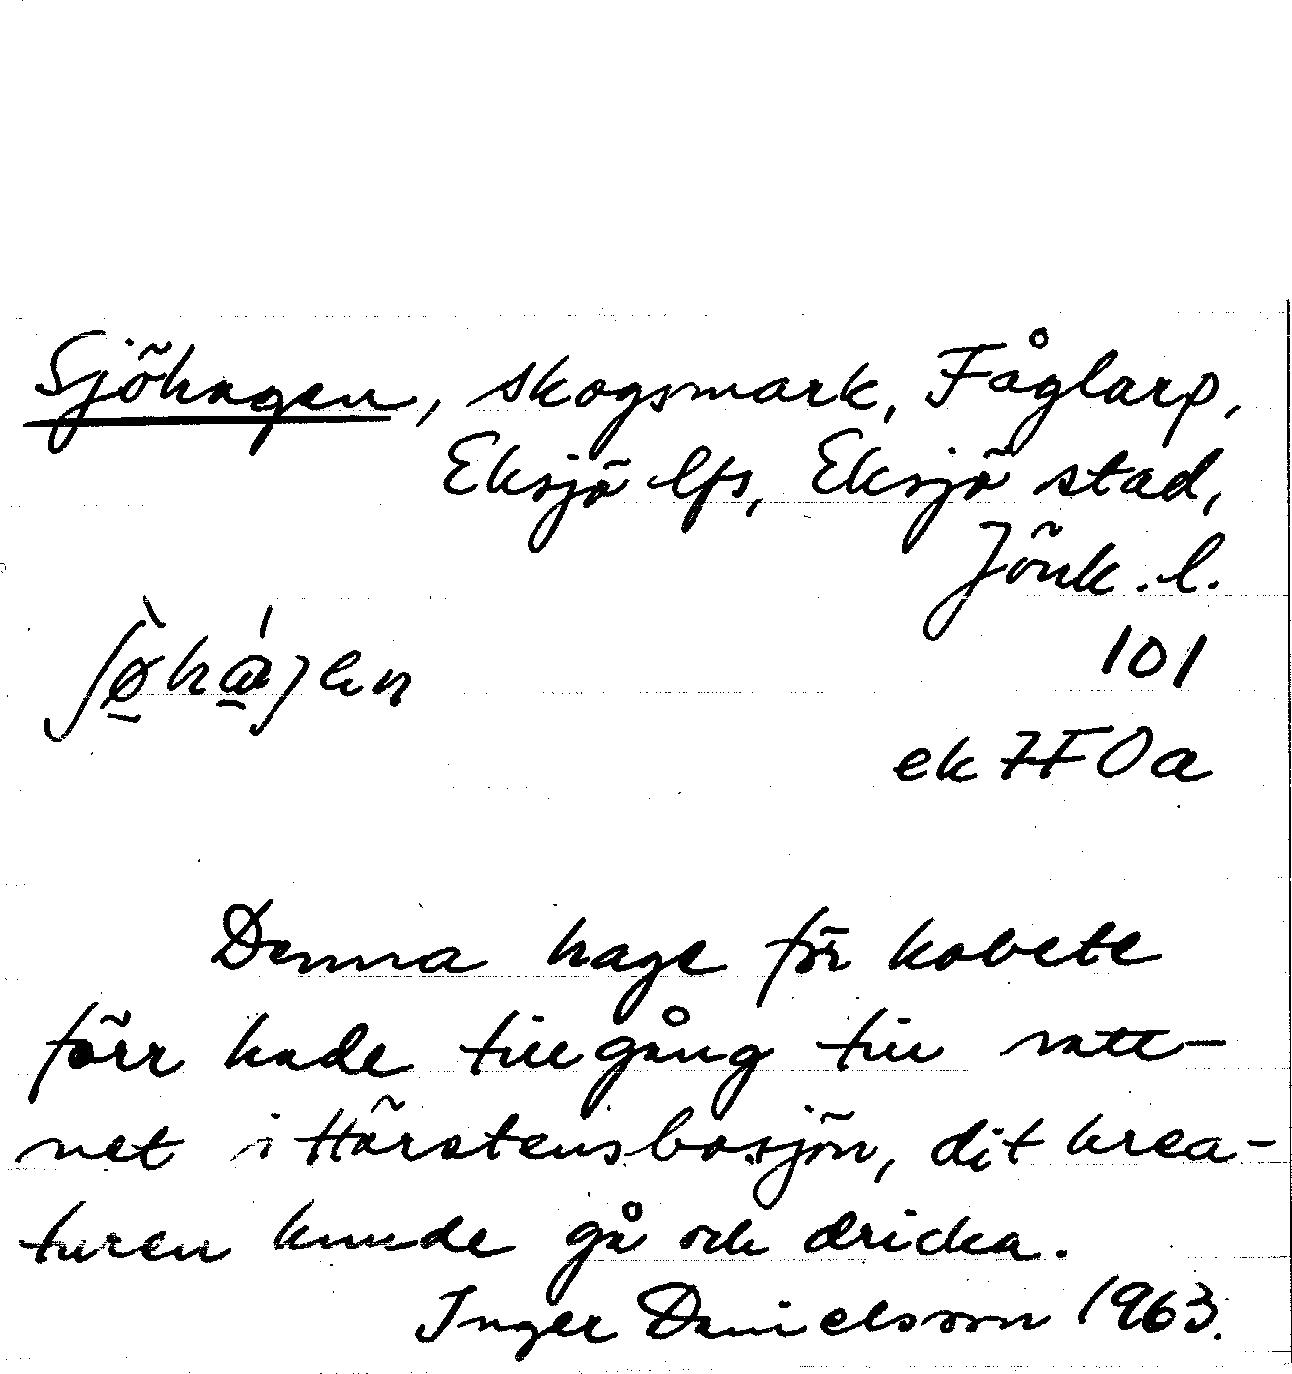 Sjöhagen, skogsmark, Fåglarp,
Eksjö lfs, Eksjö stad,
Jönk. l.
101
ek 7F0a
Denna hage för kobete
förr hade tillgång till vatt-
net i Härstensbosjön, dit krea-
turen kunde gå och dricka.
Inger Danielsson 1963.